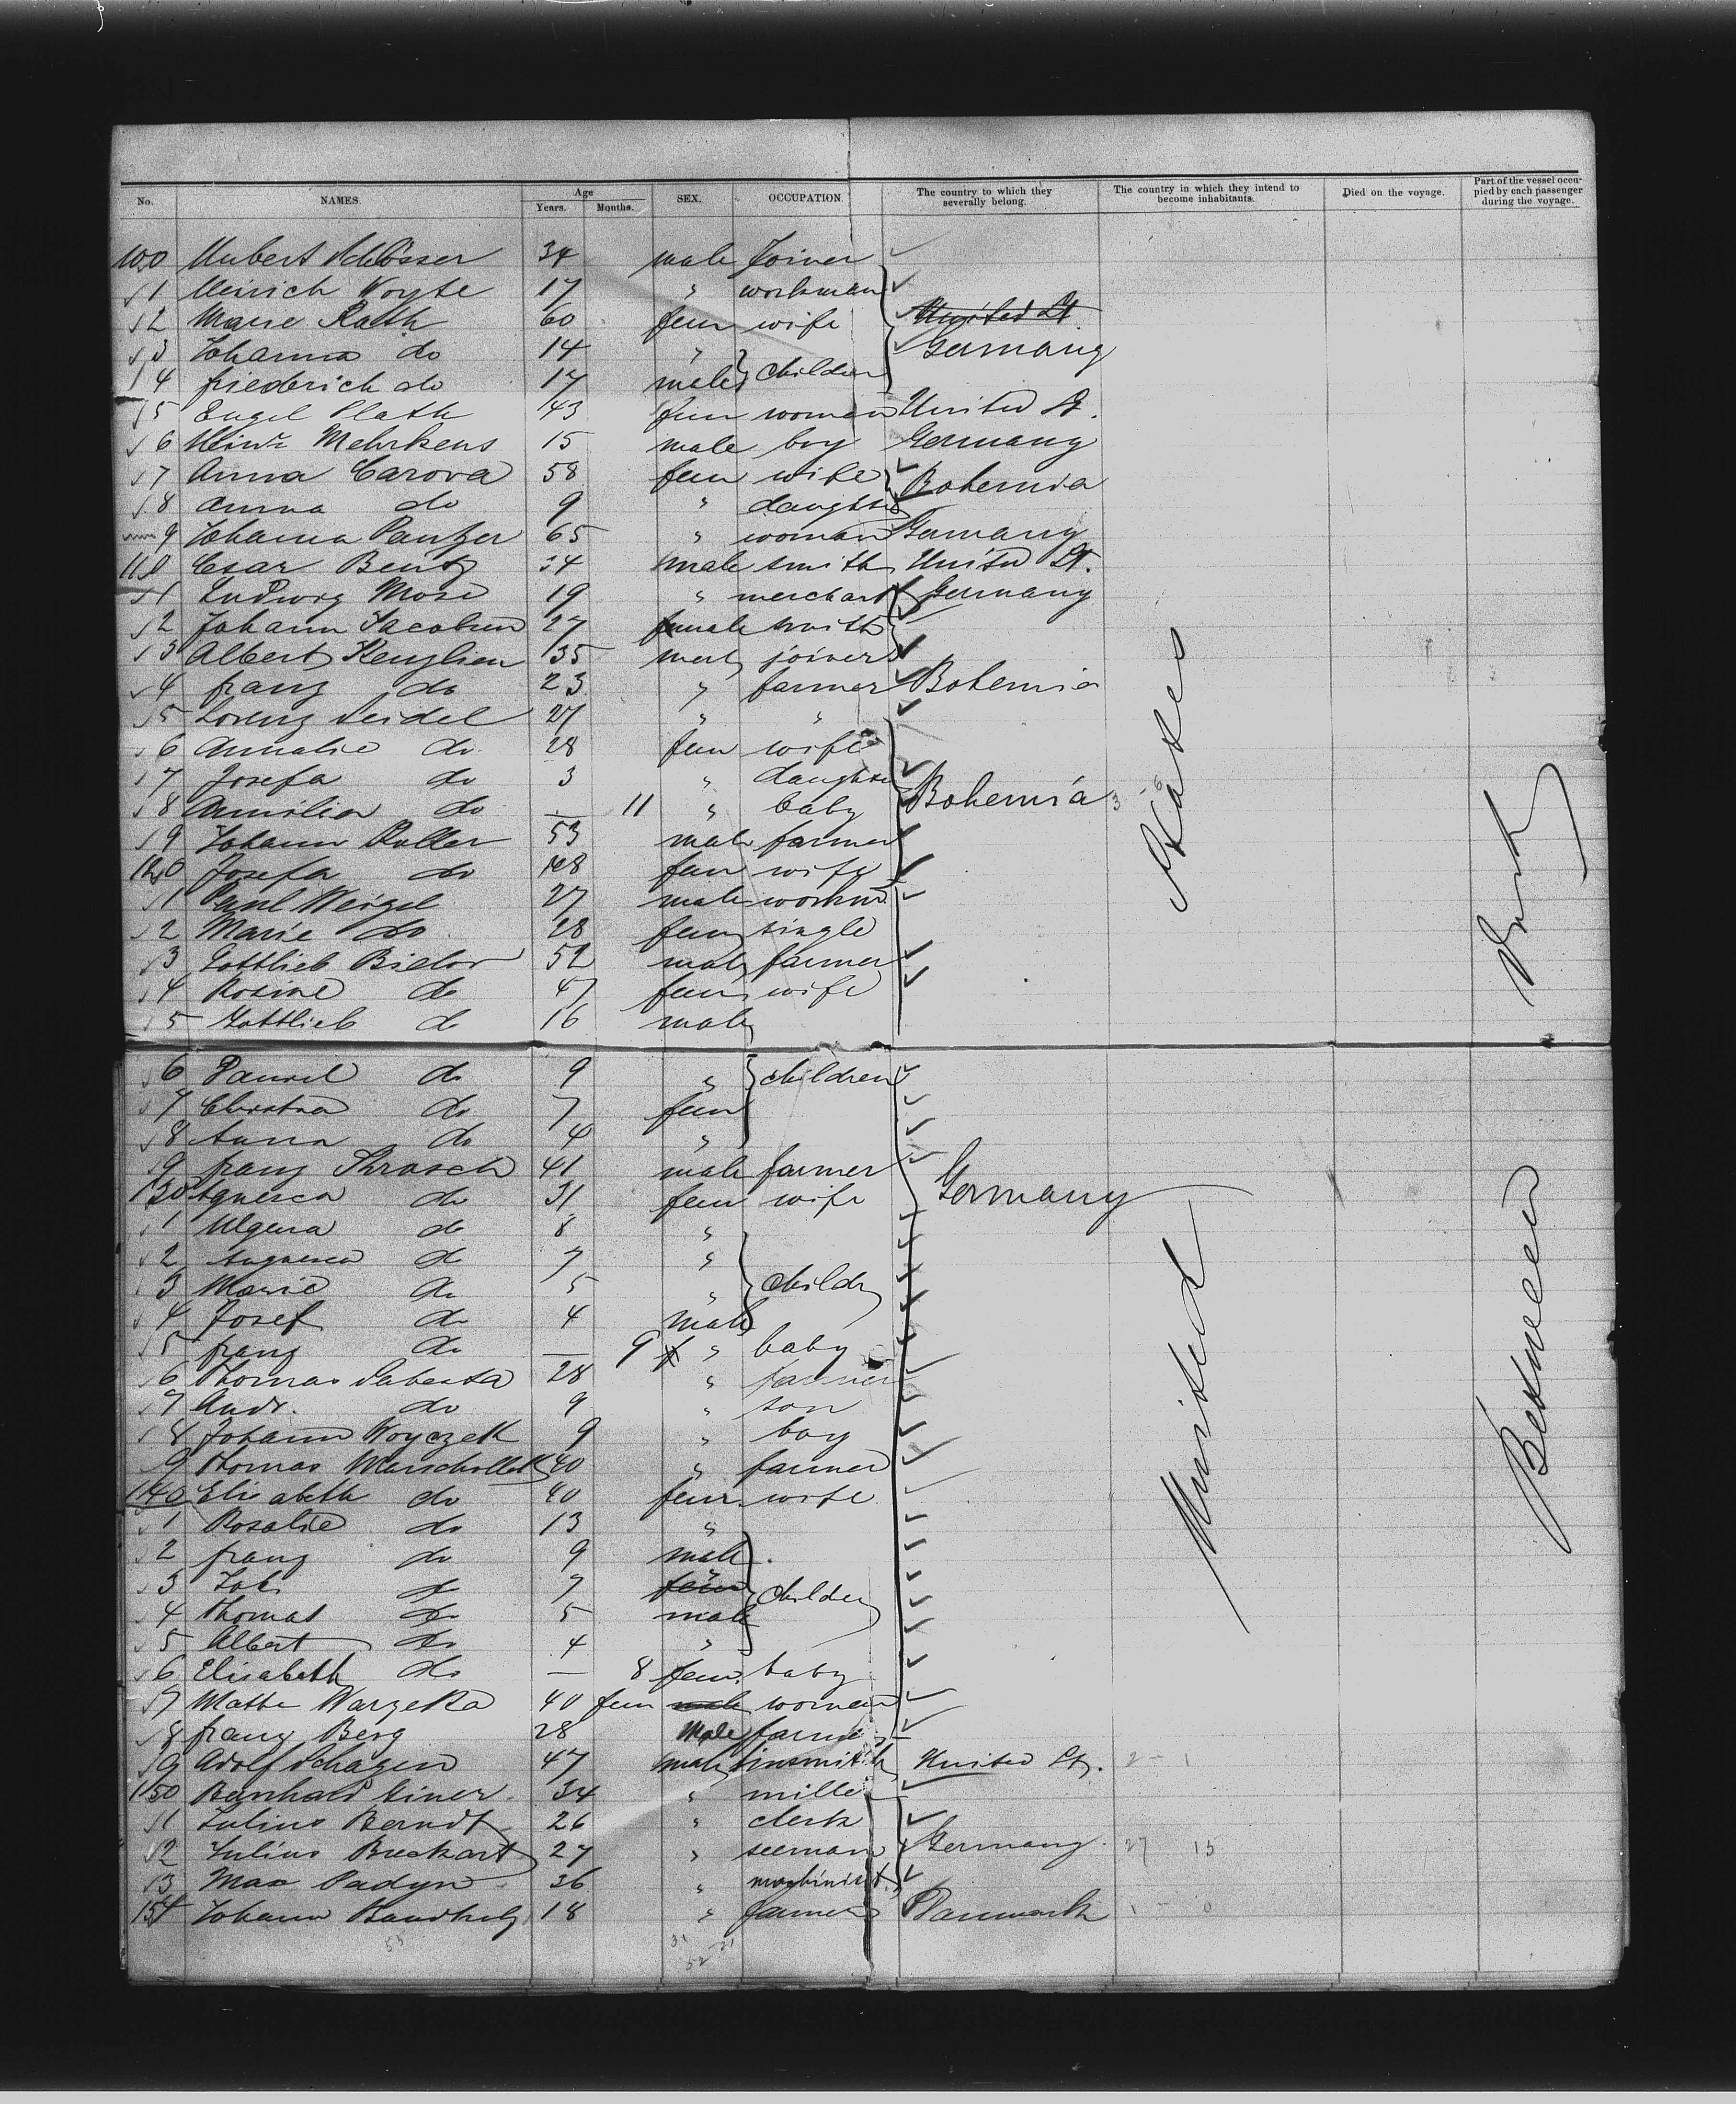 No. NAMES. Age Years. Months. SEX. OCCUPATION. The country to which they severally belong. The country in which they intend to become inhabitants. Died on the voyage. Part of the vessel occupied by each passenger during the voyage.
100 Hubert Schlösser 34 male Joiner
1 Heinrich Woyte 17 " workman
2 Marie Rath 60 fem wife United St.
3 Johanna do 14 " Germany
4 friederich do 17 male children
5 Engel Plath 43 fem women United St.
6 Heinr Mehrkens 15 male boy Germany
7 Anna Carova 58 fem wife Bohemia
8 Anna do 9 " daughter
9 Johanna Panzer 65 " woman Germany
110 Cesar Bentz 34 male smith United St.
1 Ludwig Mose 19 " merchant Germany
2 Johann Jacobsen 27 male smith
3 Albert 35 male joiner
4 franz do 23 " farmer Bohemia
5 Lorenz Seidel 27 " "
6 Annalie do 28 fem wife
7 Josefa do 3 " daughter
8 do — 11 " baby Bohemia 3
9 Johann 53 male farmer
120 Josefa do 48 fem wife
1 Paul Weigel 27 male workm
2 Marie do 28 fem single
3 Gottlieb 52 male farmer
4 Rosine do 47 fem wife
5 Gottlieb do 16 male
6 do 9 " children
7 do 7 fem
8 Anna do 4 "
9 franz 41 male farmer
130 do 31 fem wife Germany
1 do 8 "
2 do 7 "
3 Marie do 5 " childr
4 Josef do 4 male
5 franz do — 9 " baby
6 Thomas 28 " farmer
7 Andr. do 9 " son
8 Johann Woyczek 9 " boy
9 Thomas 40 " farmer
140 Elisabeth do 40 fem wife
1 Rosalie do 13 "
2 franz do 9 male
3 Joh. do 7 fem " children
4 Thomas do 5 male
5 Albert do 4 "
6 Elisabeth do — 8 fem. baby
7 Warzeka 40 fem male women
8 franz Berg 28 Male farmer
9 Adolf Schagen 47 male tinsmith United St. 2 - 1
150 Bernhard 34 " miller
1 Julius Berndt 26 " clerk
2 Julius 27 " seeman Germany 27 15
3 Max 36 " machinist
154 Johann 18 " farmer Danmark 1 - 0
United States
Between Deck